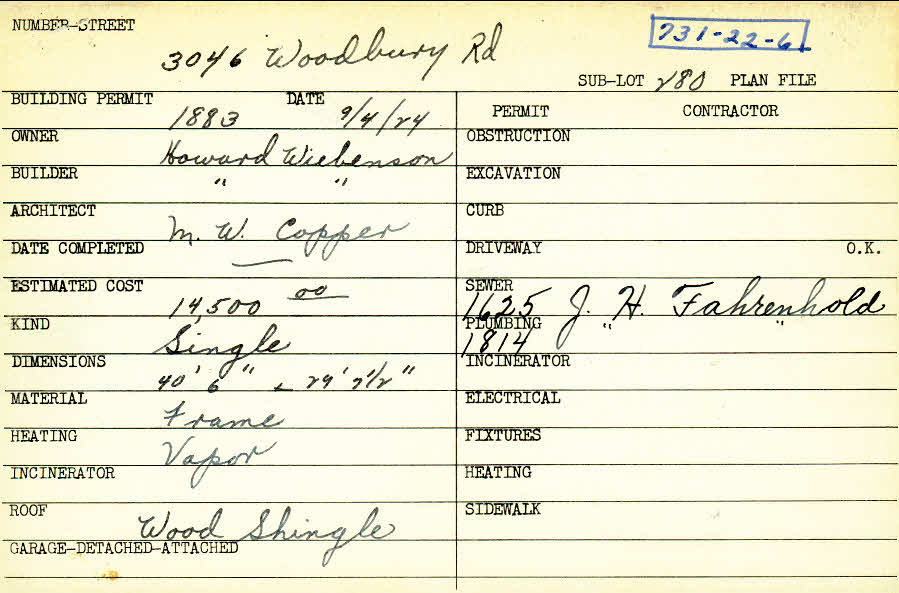 NUMBER-STREET
3046 Woodbury Rd
731-22-61
SUB-LOT 280 PLAN FILE
BUILDING PERMIT DATE
1883 9/4/24
OWNER
Howard Wiebenson
BUILDER
" "
ARCHITECT
M. W. Copper
DATE COMPLETED
—
ESTIMATED COST
14,500 00
KIND
Single
DIMENSIONS
40' 6" x 29' 7 1/2"
MATERIAL
Frame
HEATING
Vapor
INCINERATOR
ROOF
Wood Shingle
GARAGE-DETACHED-ATTACHED
PERMIT CONTRACTOR
OBSTRUCTION
EXCAVATION
CURB
DRIVEWAY O.K.
SEWER
1625 J. H. Fahrenhold
PLUMBING
1814 " "
INCINERATOR
ELECTRICAL
FIXTURES
HEATING
SIDEWALK